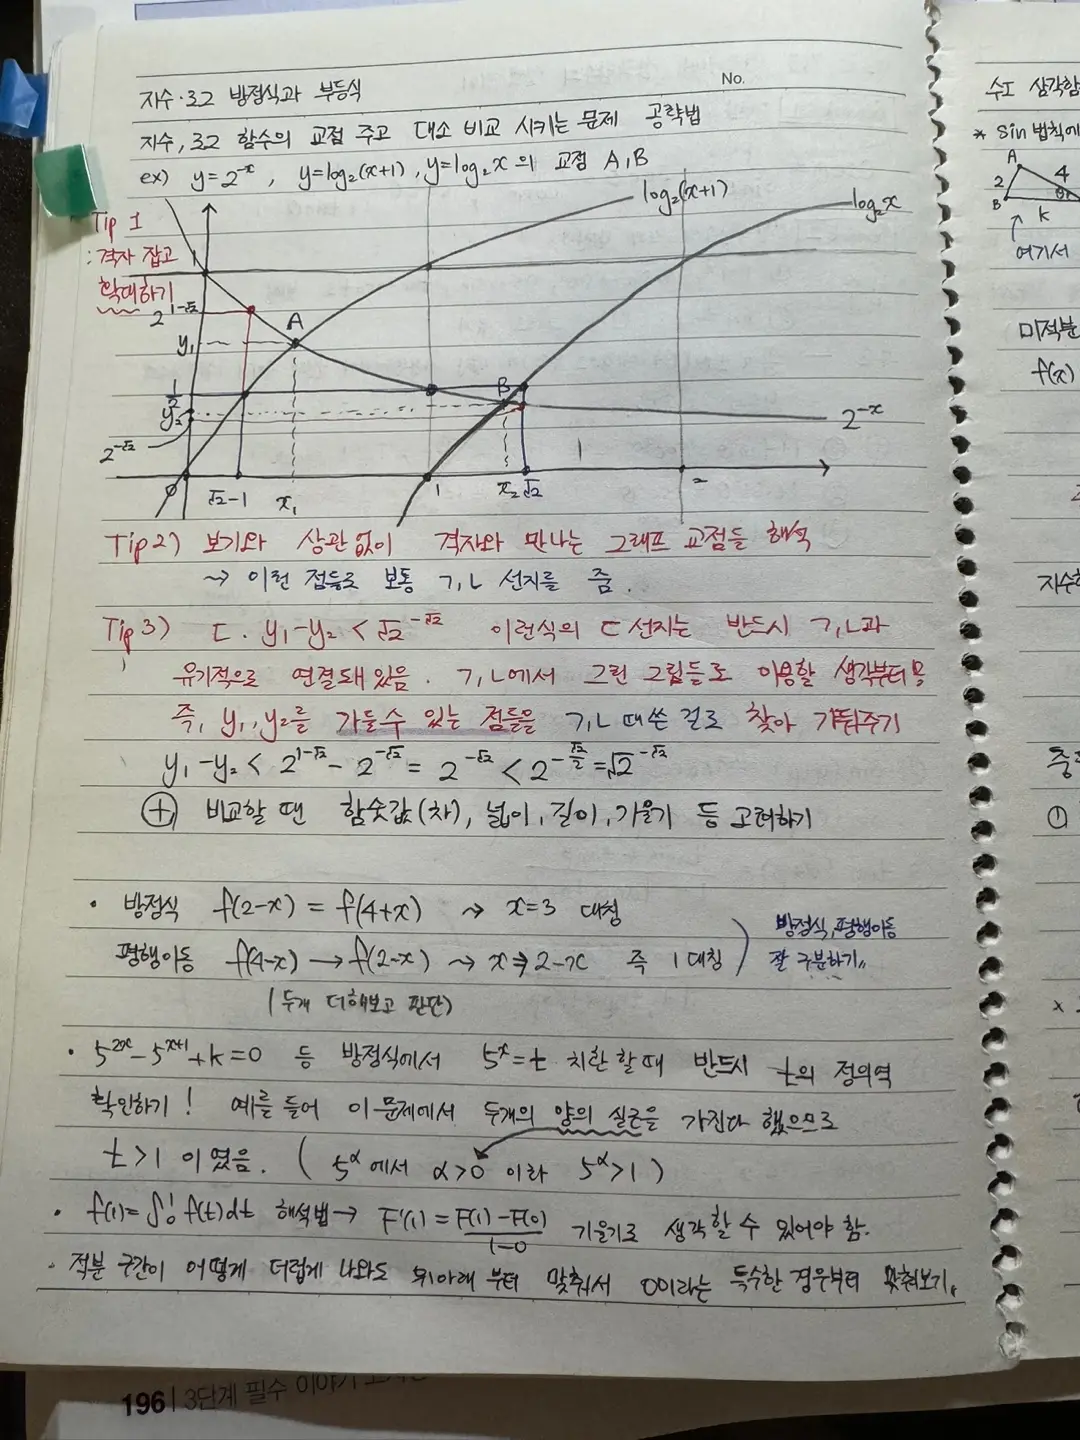 지수·로그 방정식과 부등식
No.
지수, 로그 함수의 교점 주고 대소 비교 시키는 문제 공략법
ex) y=2^-x , y=log₂(x+1), y=log₂x 의 교점 A, B
Tip 1
: 격자 잡고
확대하기
log₂(x+1)
log₂x
1
2^1-√2
A
y₁
1/2
B
y₂
2^-√2
2^-x
0
√2-1
x₁
1
x₂ √2
1
2
Tip 2) 보기와 상관없이 격자와 만나는 그래프 교점들 해석
→ 이런 점들로 보통 ㄱ,ㄴ 선지를 줌.
Tip 3) ㄷ. y₁-y₂ < √2^-√2 이런식의 ㄷ 선지는 반드시 ㄱ,ㄴ과
유기적으로 연결돼있음. ㄱ,ㄴ에서 그린 그림들로 이용할 생각부터
즉, y₁, y₂를 가둘 수 있는 점들을 ㄱ,ㄴ 때 쓴 걸로 찾아 가둬주기
y₁-y₂ < 2^1-√2 - 2^-√2 = 2^-√2 < 2^-√2/2 = √2^-√2
⊕ 비교할 땐 함숫값(차), 넓이, 길이, 기울기 등 고려하기
• 방정식 f(2-x) = f(4+x) → x=3 대칭
평행이동 f(4-x) → f(2-x) → x⇒2-x 즉 1 대칭
(두개 더해보고 판단)
방정식, 평행이동
잘 구분하기〃
• 5^2x - 5^x+1 + k = 0 등 방정식에서 5^x = t 치환 할 때 반드시 t의 정의역
확인하기! 예를 들어 이 문제에서 두개의 양의 실근을 가진다 했으므로
t>1 이였음. ( 5^α 에서 α>0 이라 5^α>1 )
• f(1)=∫₀¹ f(t)dt 해석법→ F'(1) = F(1)-F(0)/1-0 기울기로 생각할 수 있어야 함.
• 적분 구간이 어떻게 더럽게 나와도 위아래 부터 맞춰서 0이라는 특수한 경우부터 맞춰보기〃
수I 삼각함
* Sin 법칙에
A
2
4
B
k
여기서
미적분
f(x)
지수함
①
196 | 3단계 필수 이야기